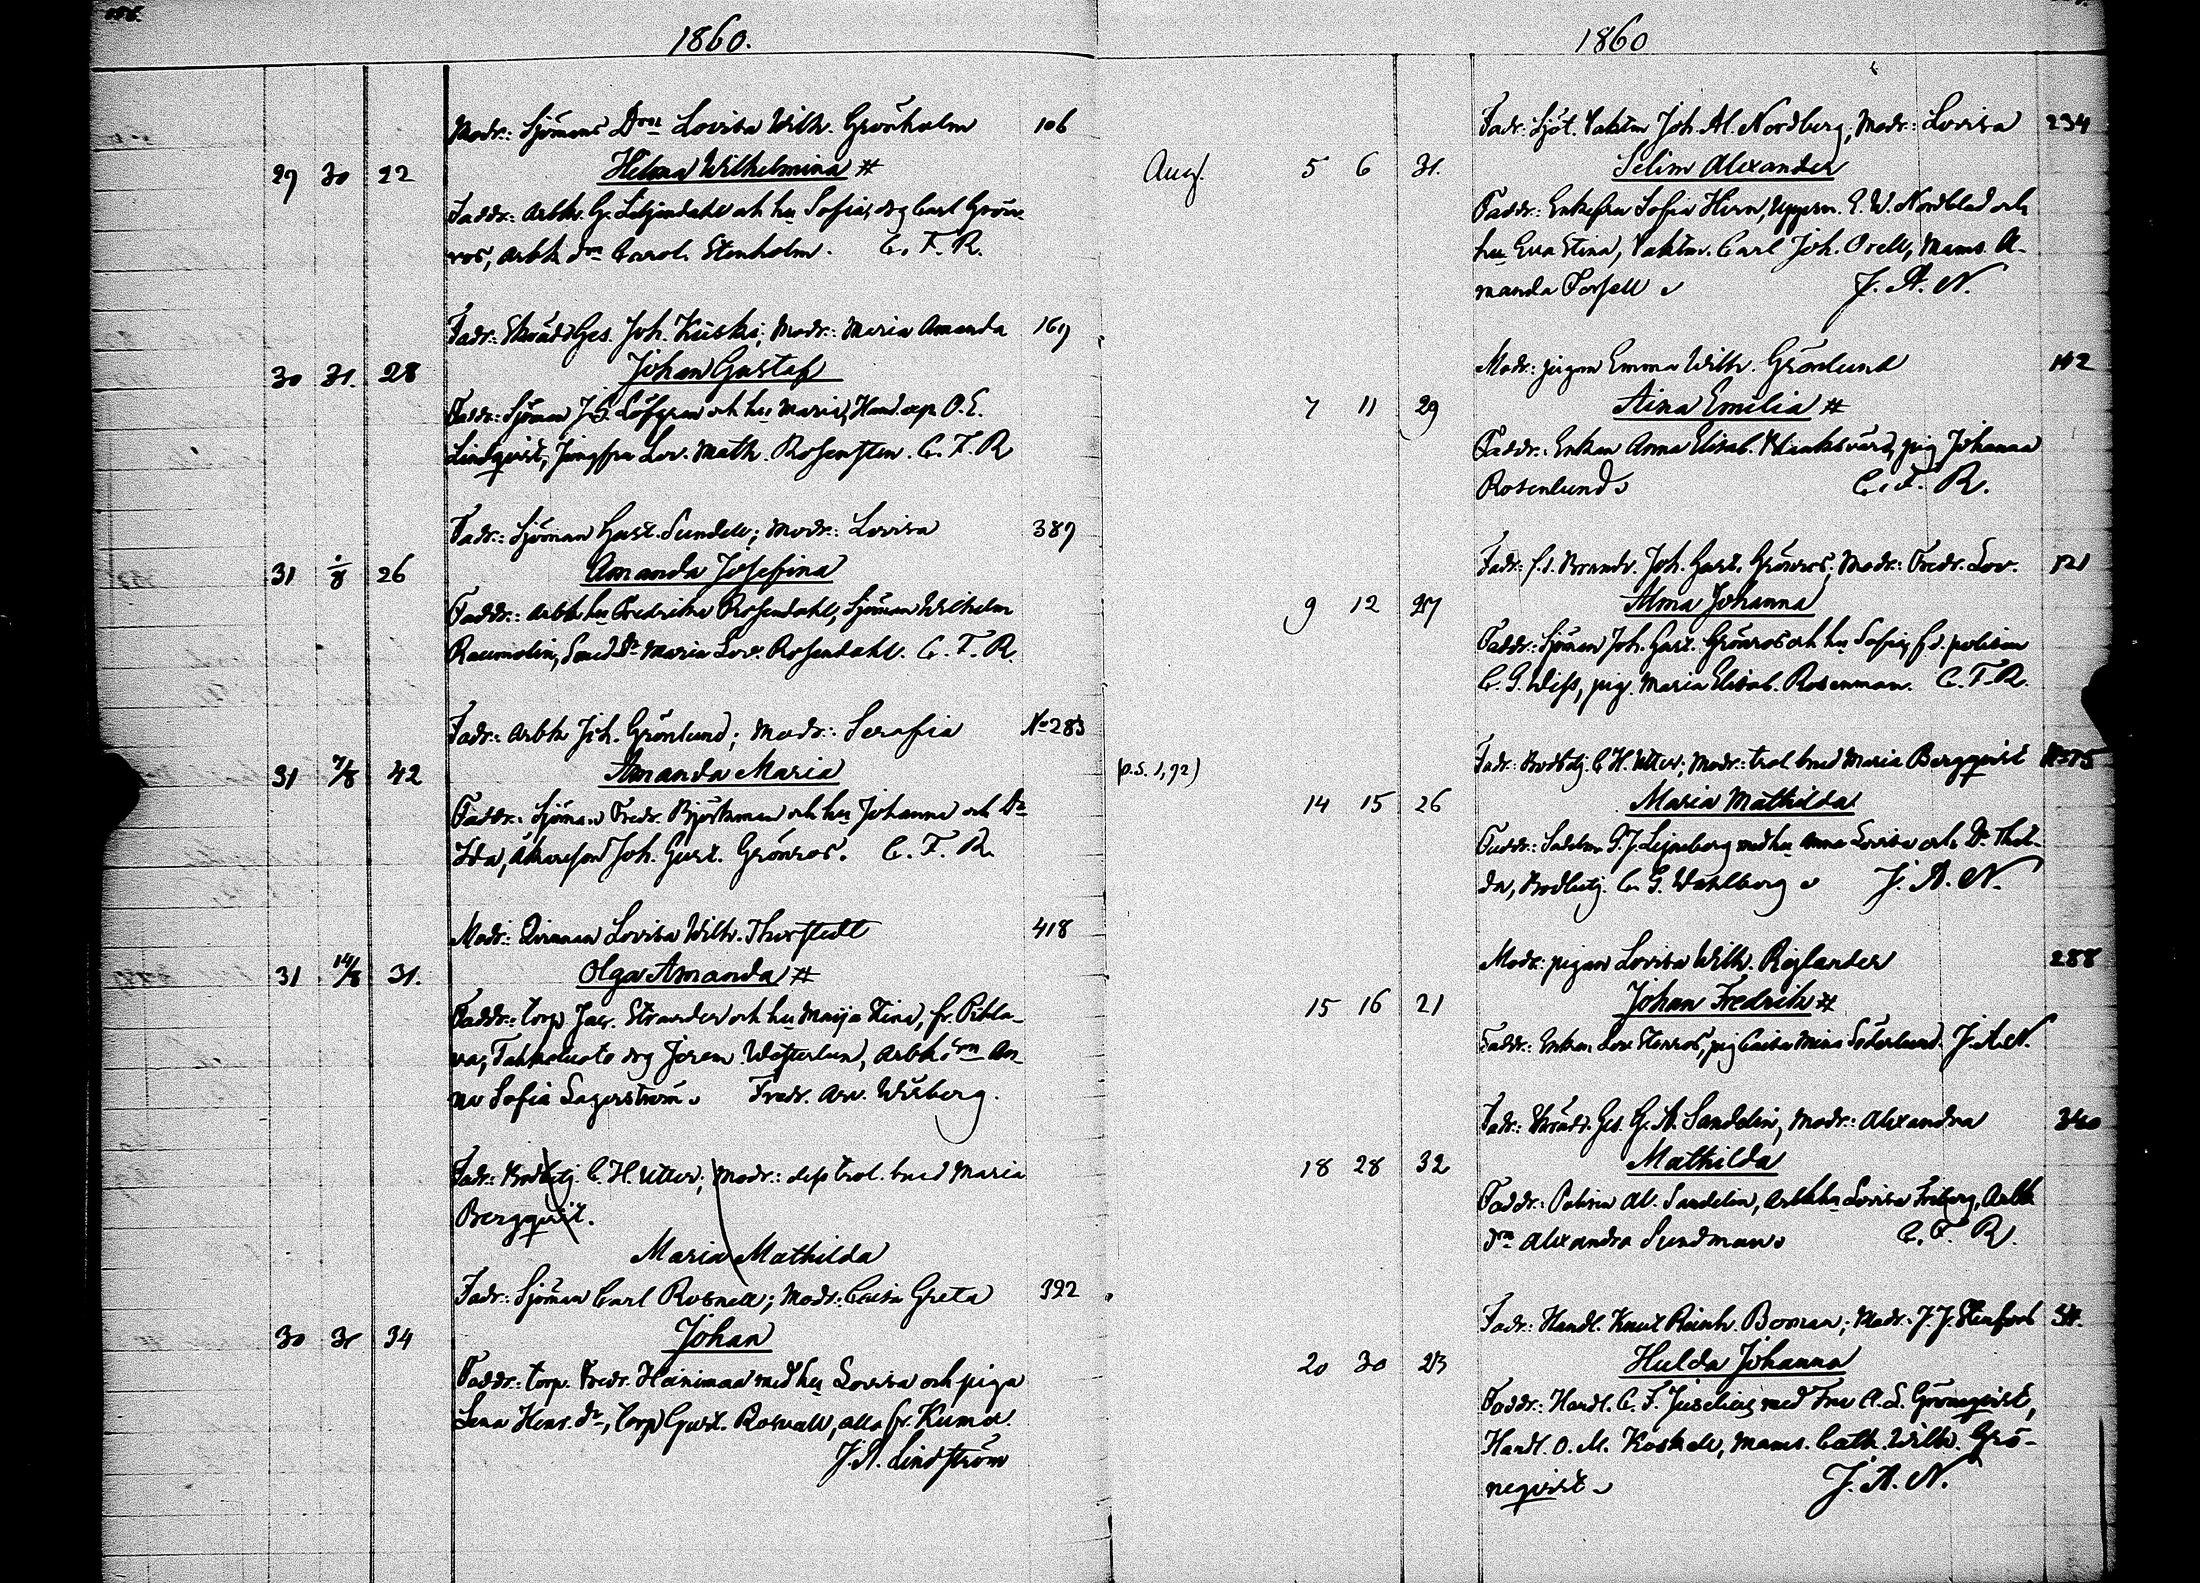 1860.
Modr: Sjömans Dtr Lovisa Wilh. Grönholm 106
29 30 22 Helma Wilhelmina #
Faddr: Arbk. G. Liljendahl och hu Sofia, dg Carl Grön-
ros, arbk dr Carol. Stenholm. C. F. R.
Fadr: Skrädd Ges. Joh. Kuski; Modr: Maria Amanda 169
30 31. 28 Johan Gustaf
Faddr: Sjöman J. S. Löfgren och hu Maria, Hand. exp. O. E.
Lindqvist, Jungfru Lov. Math. Rosensten. C. F. R
Fadr: Sjöman Gust. Sundell; Modr: Lovisa 389
31 1/8 26 Amanda Josefina
Faddr: Arbk hu Fredrika Rosendahl, Sjöman Wilhelm
Raumolin, Smed Dr Maria Lov. Rosendahl. C. F. R.
Fadr: Arbk Joh. Grönlund; Modr: Serafia No 283
31 7/8 42 Amanda Maria
Faddr: Sjöman Fredr. Björkman och hu Johanna och Dr
Ida, Joh. Gust. Grönros. C. F. R.
Modr: Qvinnan Lovisa Wilh. Thorstedt 418
31 14/8 31. Olga Amanda #
Faddr: Torp Jac. Strander och hu Maija Stina, fr. Pihla-
va, Tahkoluoto dg Jerem Westerlun, Arbk dtr An-
na Sofia Lagerström. Fredr. Arv. Wiberg.
Fadr: Bodbetj. C. H. Utter; Modr: dess trol. brud Maria
Bergqvist.
Maria Mathilda
Fadr: Sjöman Carl Rosnell; Modr: Caisa Greta 392
30 31 34 Johan
Faddr: Torp. Fredr. Heinimaa med hu Lovisa och piga
Lena Henr. dr, Torp Gust. Rosvall, alla fr. Kumo.
J. A. Lindström
1860
Fadr: Sjöt. Vaktm Joh. Al. Nordberg, Modr: Lovisa 234
Aug. 5 6 31. Selim Alexander
Faddr: Enkefru Sofia Hirn, Uppsn. E. W. Nordblad och
hu Eva Stina, Vaktm. Carl Joh. Orell, Mams. A-
manda Forsell J. A. N.
Modr: pigan Emma Wilh. Grönlund 142
7 11 29 Aina Emilia #
Faddr: Enkan Anna Elisab. Klinksvärd, pig Johanna
Rosenlund C. F. R.
Fadr: f.d. Brandv. Joh. Gust. Grönros; Modr: Fredr. Lov. 121
9 12 27 Alma Johanna
Faddr: Sjöman Joh. Gust. Grönros och hu Sofia, f.d. polisen
C. G. Wiss, pig. Maria Elisab. Rosenman. C. F. R.
Fadr: Bodbetj. C. H. Utter; Modr: trol. brud Maria Bergqvist
(p.S. 1,92) 14 15 26 Maria Mathilda
Faddr: Sadelm. G. J. Lejneberg med hu Anna Lovisa och Dr Thil-
da, Bodbetj. C. G. Wahlberg J. A. N.
Modr: pigan Lovisa Wilh. Röjlander 288
15 16 21 Johan Fredrik #
Faddr: Enkan Lov. Stenros, pig Caisa Mina Söderlund. J. A. N.
Fadr: Skrädd. Ges. G. A. Sandelin, Modr: Alexandra 340
18 28 32 Mathilda
Faddr: Polisen Al. Sandelin, Arbk hu Lovisa Friberg, Arbk
dtr Alexandra Sundman C. F. R.
Fadr: Handl. Knut Reinh. Boman; Modr: J. J. Stenfors 34.
20 30 23 Hulda Johanna
Faddr: Handl. C. F. Juselius med Fru A. L. Grönqvist,
Handl. O. M. Koskell, Mams. Cath. Wilh. Grö-
nqvist J. A. N.